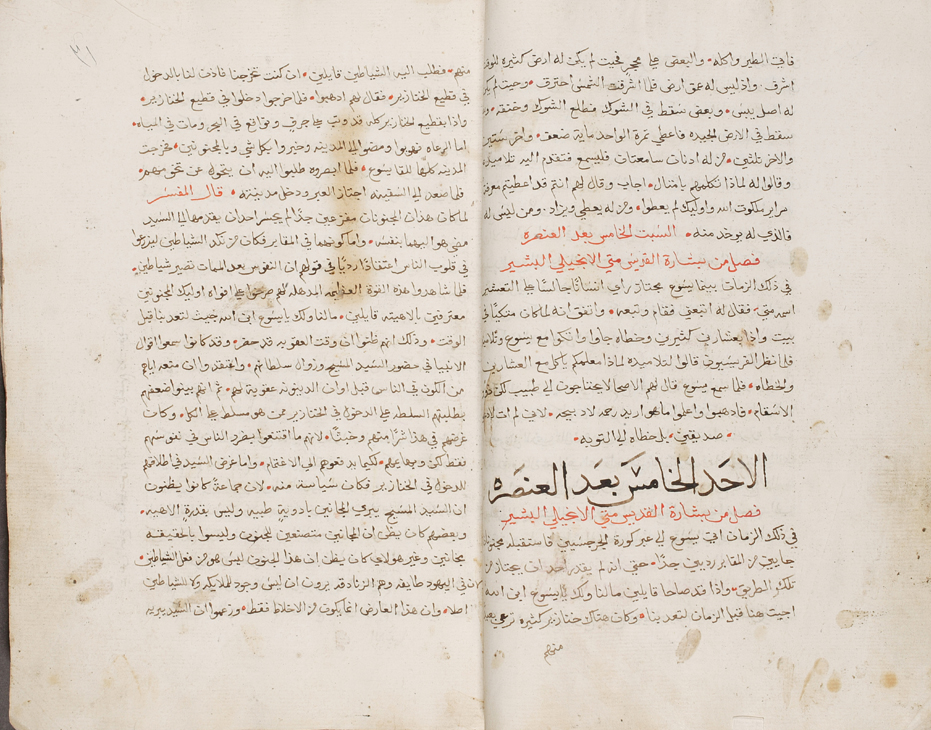 فاتى الطير واكله • والبعض على صخر فحيث لم يكن له ارض كثيرة
اشرق • واذ ليس له عمق ارض فلما اشرقت الشمس احترق • وحيث لم يكن
له اصل يبس • وبعض سقط في الشوك فطلع الشوك وخنقه •
سقط في الارض الجيده فاعطي ثمرة الواحد ماية ضعف • واخر ستين
والاخر تلثين • من له ادنان سامعتان فليسمع فتقدم اليه تلاميذه
وقالوا له لماذا تكلمهم بامثال • اجاب وقال لهم انتم قد اعطيتم معرفة
سراير ملكوت الله واوليك لم يعطوا • ومن له يعطي ويزاد • ومن ليس له
فالذي له يوخد منه • السبت الخامس بعد العنصره
فصل من بشارة القديس متي الانجيلي البشير
في ذلك الزمان بينما يسوع مجتاز راي انسانًا جالسًا على التعشير
اسمه متي • فقال له اتبعني فقام وتبعه • واتفق انه لما كان متكيًا في
بيت واذا بعشارين كثيرين وخطاه جاوا واتكوا مع يسوع وتلاميذه
فلما نظر الفريسيون قالوا لتلاميذه لماذا معلمكم ياكل مع العشارين
والخطاه • فلما سمع يسوع قال لهم الاصحا لا يحتاجون الى طبيب لكن ذوي
الاسقام • فادهبوا واعلموا ما هو اريد رحمه لا دبيحه • لاني لم ات لادعو
• صديقين • بل خطاه الى التوبه •
الاحد الخامس بعد العنصره
فصل من بشارة القديس متي الانجيلي البشير
في ذلك الزمان اتى يسوع الى عبر كورة الجرجسيين فاستقبله مجنونان
جايين من المقابر رديين جدًا • حتي انه لم يقدر احد ان يجتاز من
تلك الطريق • واذا قد صاحا قايلين ما لنا ولك يا يسوع ابن الله
اجيت هنا قبل الزمان لتعدبنا • وكان هناك خنازير كثيرة ترعي
منهم
٣١
منهم • فطلب اليه الشياطين قايلين • ان كنت تخرجنا فاذن لنا بالدخول
في قطيع الخنازير • فقال لهم ادهبوا • فلما خرجوا دخلوا في قطيع الخنازير •
واذا بقطيع الخنازير كله قد وثب على جرف وتواقع في البحر ومات في المياه •
اما الرعاه فهربوا ومضوا الى المدينه وخبروا بكل شي وبالمجنونين • فخرجت
المدينه كلها للقا يسوع • فلما ابصروه طلبوا اليه ان يتحول عن تخومهم •
فلما صعد الى السفينه اجتاز العبر ودخل مدينته • قال المفسر
لما كان هذان المجنونان مفزعين جدًا لم يجسر احد ان يقدمهما الى السيد
مضى هو اليهما بنفسه • واما كونهما في المقابر فكان من نكد الشياطين ليزرعوا
في قلوب الناس اعتقادًا رديًا في قولهم ان النفوس بعد الممات تصير شياطين •
فلما شاهدوا هذه القوة العظيمه المدهله لهم صرخوا على افواه اوليك المجنونين
معترفين بالاهيته قايلين • مالنا ولك يا يسوع ابن الله جيت لتعدبنا قبل
الوقت • وذلك انهم ظنوا ان وقت العقوبه قد حضر • وقد كانوا سمعوا اقوال
الانبيا في حضور السيد المسيح وزوال سلطانهم • واعتقدوا ان منعه اياهم
من الكون في الناس قبل اوان الدينونه عقوبة لهم • ثم انهم بينوا ضعفهم
بطلبتهم السلطه على الدخول في الخنازير ممن هو مسلط على الكل • وكان
غرضهم في هذا شرًا منهم وخبثًا • لانهم ما اقتنعوا بضرر الناس في نفوسهم
فقط لكن وبهايمهم • لكيما يدفعوهم الى الاغتمام • واما غرض السيد في اطلاقهم
للدخول في الخنازير فكان سياسة منه • لان جماعةً كانوا يظنون
ان السيد المسيح يبري المجانين بادوية طبيه وليس بقدرة الاهيه •
وبعضهم كان يظن ان المجانين متصنعين للجنون وليسوا بالحقيقه
مجانين • وغير هولاي كان يظن ان هذا الجنون ليس هو من فعل الشياطين •
لان في اليهود طايفه وهم الزنادقه يرون ان ليس وجود لملايكه ولا لشياطين
اصلا • وان هذا العارض انما يكون من الاخلاط فقط • وزعموا ان السيد يبريه